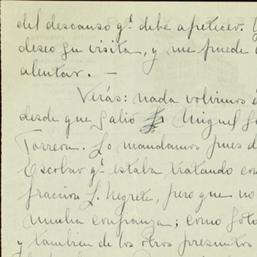 del descanso qᵉ debe apetecer.
deseo su visita, y me puede
alentar. —
Verás: nada volvimos
desde que salió Miguel
Torreon. Lo mandamos pues
Escobar qᵉ estaba tratando con
fraccion L. Negrete, pero que no
mucha confianza; como
y tambien de los otros presuntos